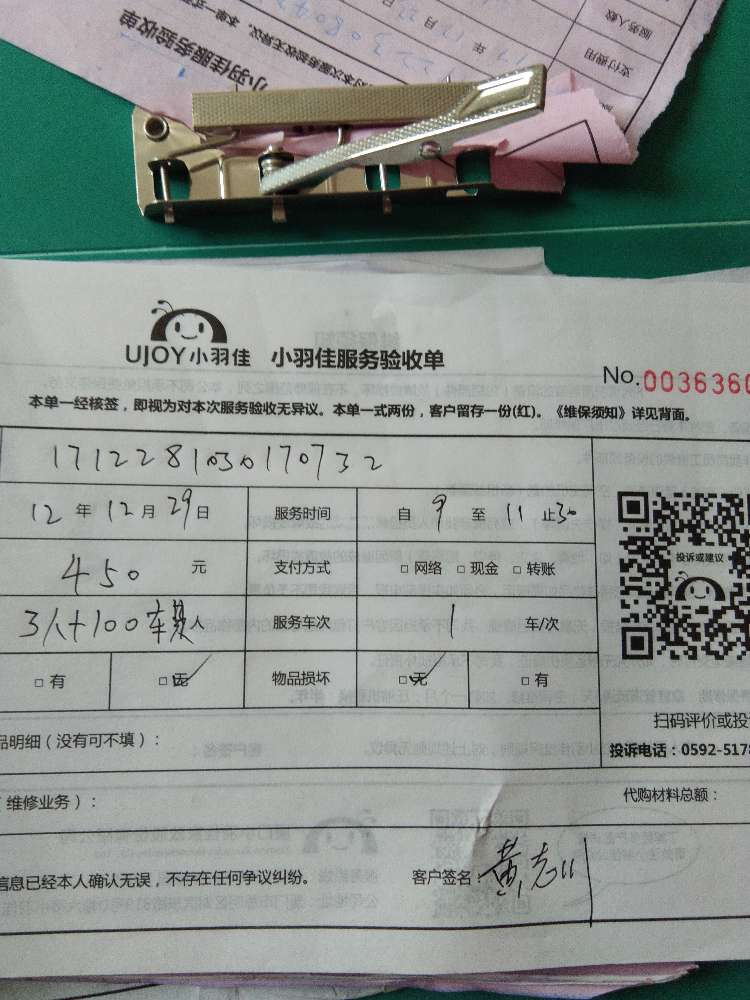 小羽佳服务验收单
UJOY小羽佳 小羽佳服务验收单
No.0036360
本单一经核签,即视为对本次服务验收无异议。本单一式两份,客户留存一份(红)。《维保须知》详见背面。
1712281030170732
12年12月29日 服务时间 自9至11止30
450元 支付方式 □网络 □现金 □转账
3人+100车费人 服务车次 1 车/次
□有 □无 物品损坏 □无 □有
投诉或建议
扫码评价或投
投诉电话:0592-5178
品明细(没有可不填):
维修业务):
代购材料总额:
信息已经本人确认无误,不存在任何争议纠纷。
客户签名:黄志川